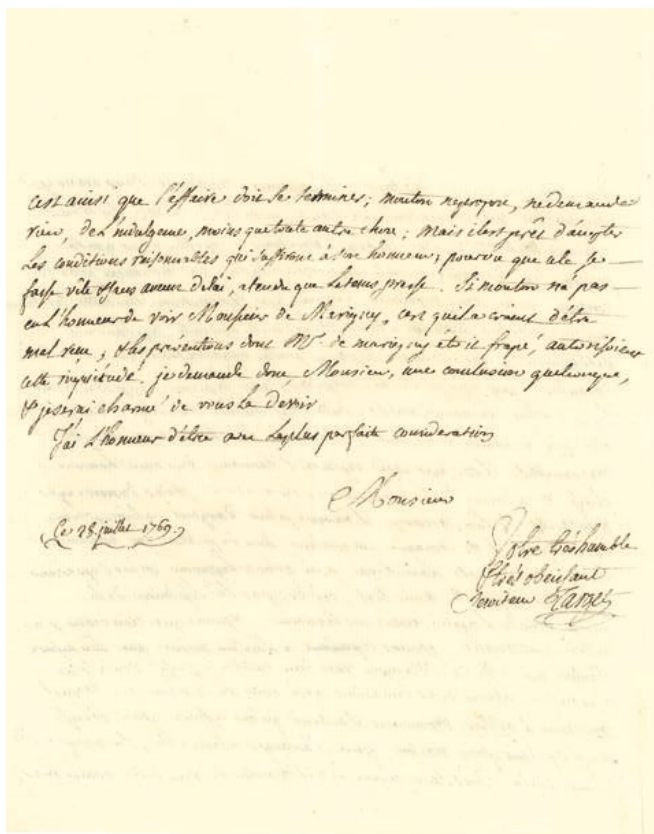 c'est ainsi que l'affaire doit se terminer; mouton ne propose, ne demande
rien, de L'indulgence, moins que toute autre chose; mais il est prêt d'accepter
Les conditions raisonnables qui suffisent à son honneur; pourvu que cela se
fasse vite & sans aucun délai, attendu que Le tems presse. Si mouton n'a pas
eu L'honneur de voir Monsieur de Marigny, c'est qu'il a craint d'être
mal reçu; & les préventions dont Mr. de marigny étoit frapé, autorisoient
cette inquiétude. je demande donc, Monsieur, une conclusion quelconque,
& je serai charmé de vous La devoir
J'ai L'honneur d'être avec La plus parfaite consideration
Monsieur
Ce 28. juillet 1769.
Votre très humble
& très obeissant
Serviteur Target